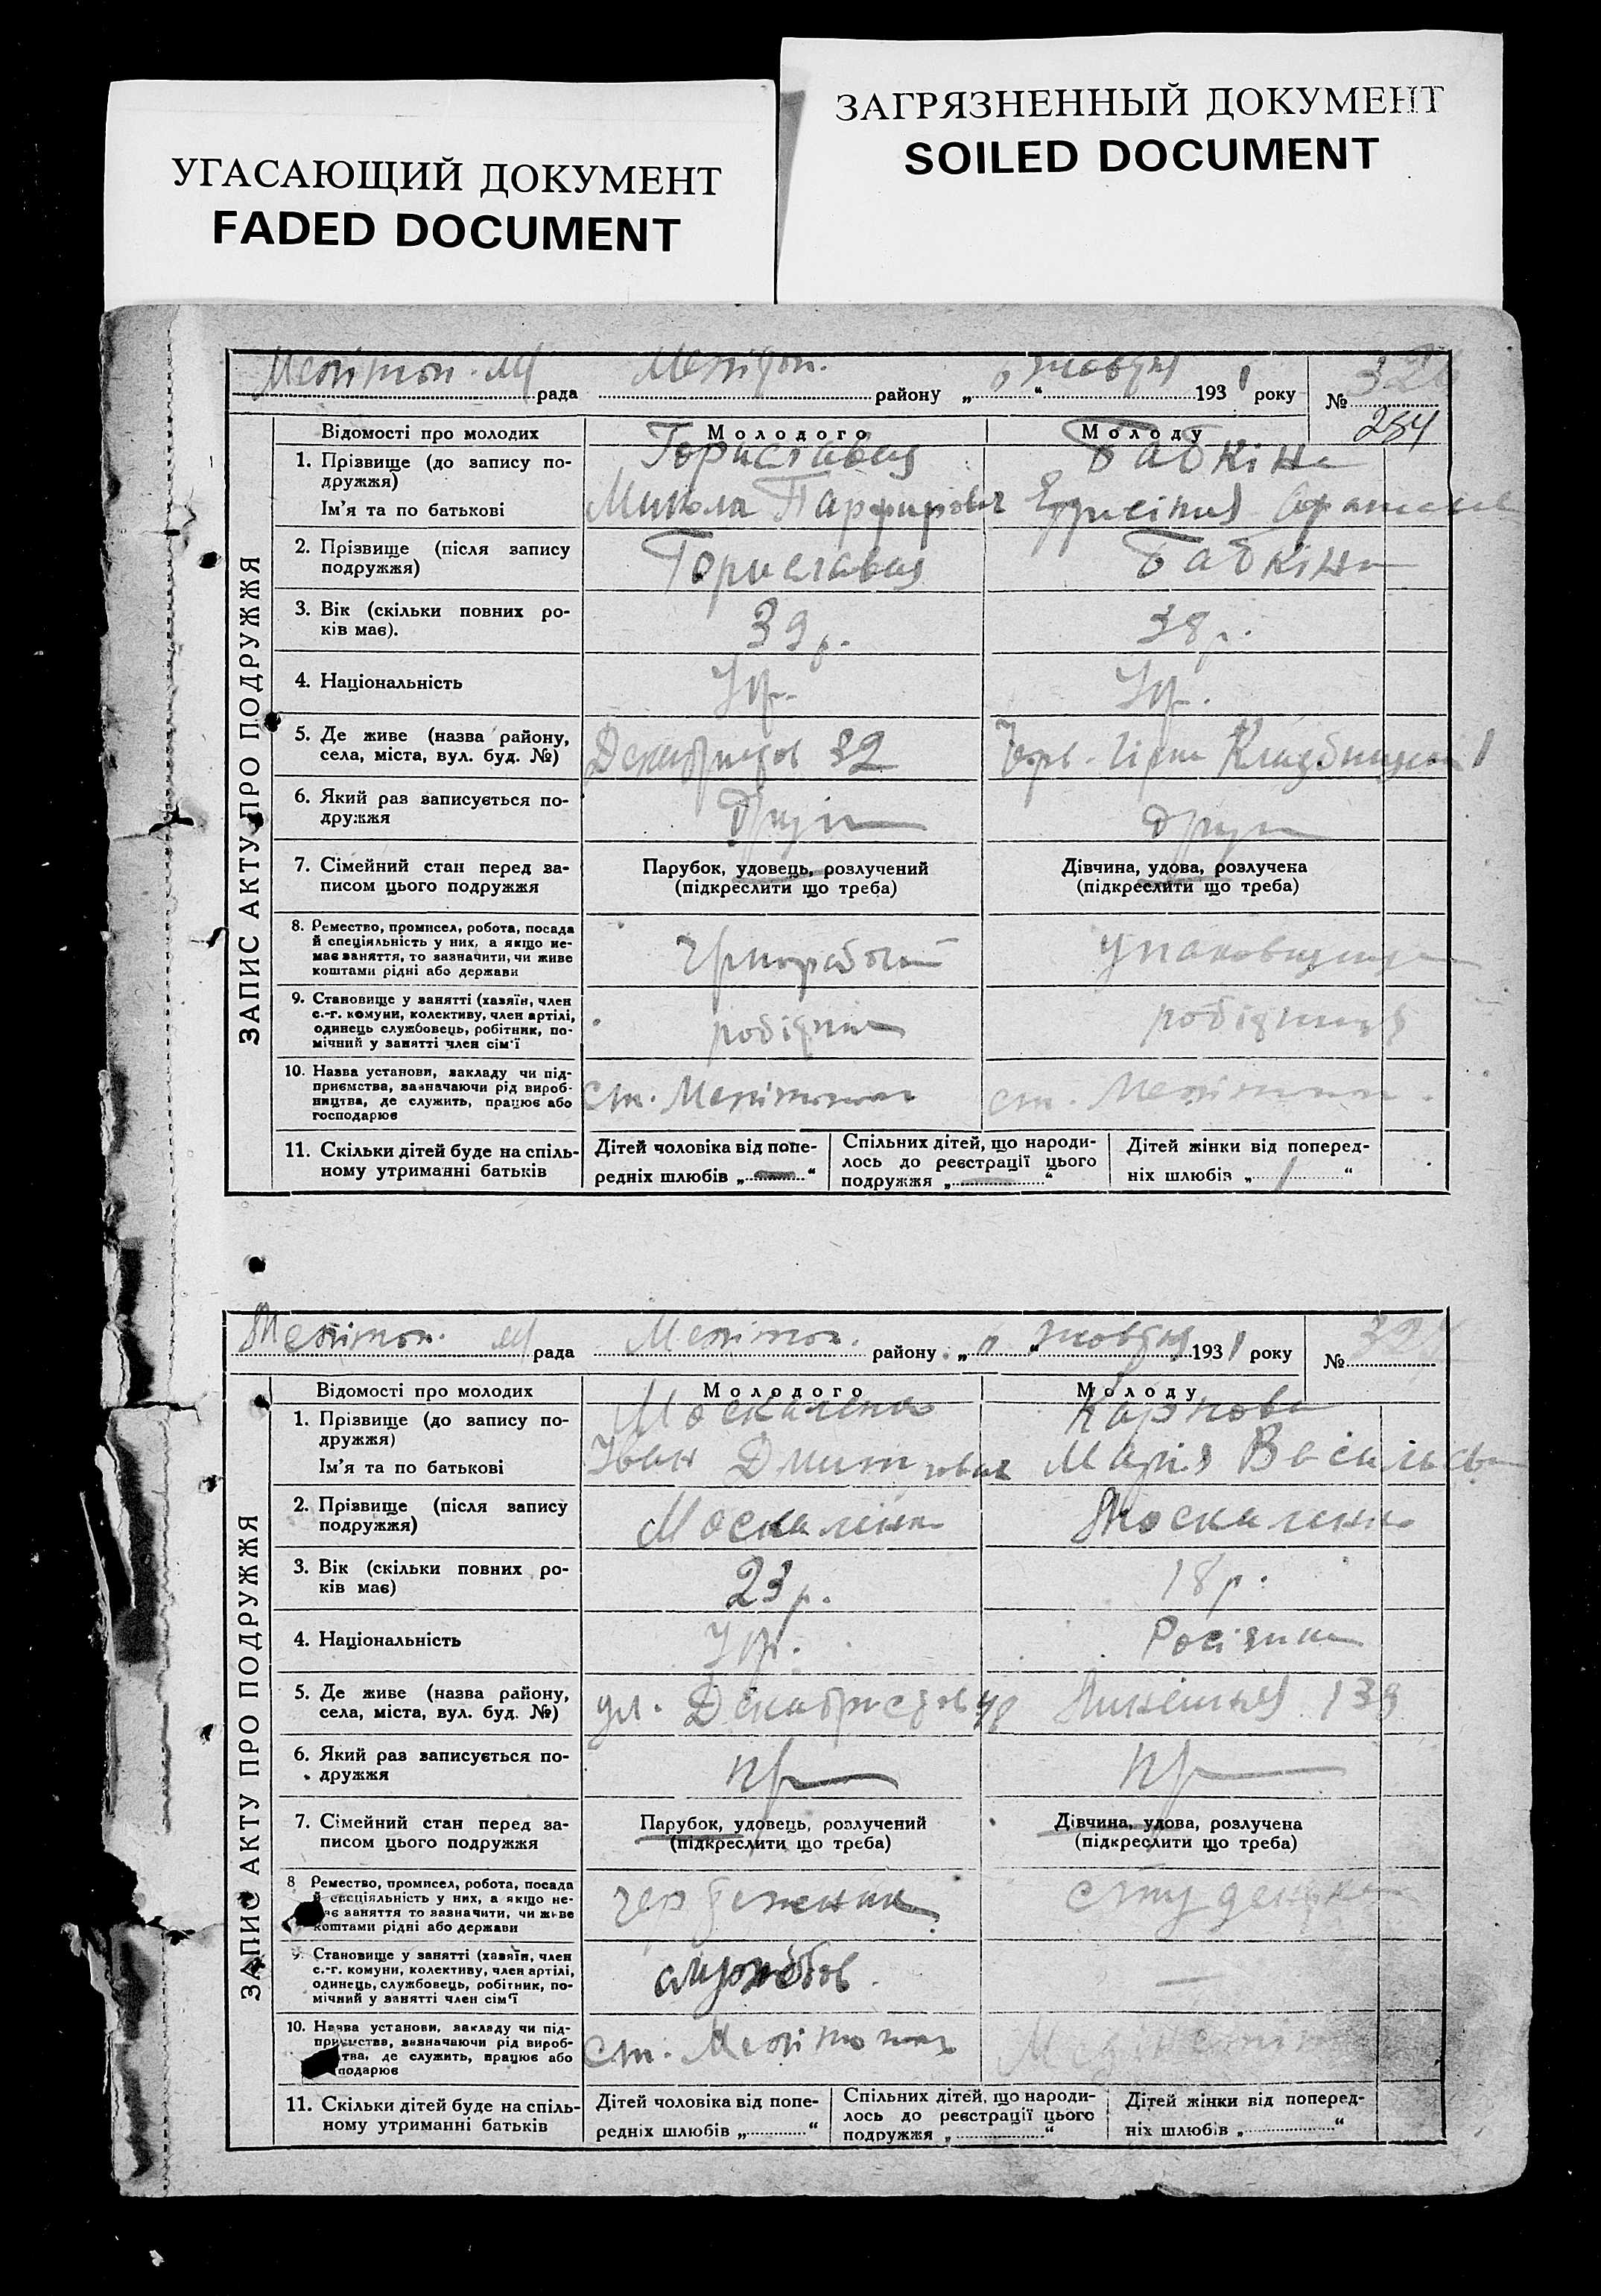 УГАСАЮЩИЙ ДОКУМЕНТ
FADED DOCUMENT
ЗАГРЯЗНЕННЫЙ ДОКУМЕНТ
SOILED DOCUMENT
ЗАПИС АКТУ ПРО ПОДРУЖЖЯ
Мелітоп. М рада район у „ “ жовтня 1931 року № 326
284
Відомості про молодих Молодого Молоду
1. Прізвище (до запису по-
дружжя) Бабкіна
Ім'я та по батькові Микола Парфирович
2. Прізвище (після запису
подружжя) Бабкіна
3. Вік (скільки повних ро-
ків має). 39 р. 38 р.
4. Національність Укр. Укр.
5. Де живе (назва району,
села, міста, вул. буд. №) Декабристов 32
6. Який раз записується по-
дружжя
7. Сімейний стан перед за-
писом цього подружжя
Парубок, удовець, розлучений
(підкреслити що треба)
Дівчина, удова, розлучена
(підкреслити що треба)
8. Ремество, промисел, робота, посада
й спеціяльність у них, а якщо не-
має заняття, то зазначити, чи живе
коштами рідні або держави
9. Становище у занятті (хазяїн, член
с.-г. комуни, колективу, член артілі,
одинець службовець, робітник, по-
мічний у занятті член сім'ї робітниця
10. Назва установи, закладу чи під-
приємства, зазначаючи рід вироб-
ництва, де служить, працює або
господарює
ст. Мелітополь ст. Мелітополь
11. Скільки дітей буде на спіль-
ному утриманні батьків
Дітей чоловіка від попе-
редніх шлюбів „ — “
Спільних дітей, що народи-
лось до реєстрації цього
подружжя „ — “
Дітей жінки від поперед-
ніх шлюбів „ 1 “
ЗАПИС АКТУ ПРО ПОДРУЖЖЯ
Мелітоп. М рада Мелітоп. району „ “ жовтня 1931 року № 327
Відомості про молодих Молодого Молоду
1. Прізвище (до запису по-
дружжя) Москаленко Карпова
Ім'я та по батькові Іван Дмитрович Марія Васильевна
2. Прізвище (після запису
подружжя) Москаленко Москаленко
3. Вік (скільки повних ро-
ків має) 23 р. 18 р.
4. Національність Укр. Росіянка
5. Де живе (назва району,
села, міста, вул. буд. №) ул. Декабристов
6. Який раз записується по-
дружжя
7. Сімейний стан перед за-
писом цього подружжя
Парубок, удовець, розлучений
(підкреслити що треба)
Дівчина, удова, розлучена
(підкреслити що треба)
8 Ремество, промисел, робота, посада
й спеціяльність у них, а якщо не-
має заняття то зазначити, чи живе
коштами рідні або держави
студентка
9. Становище у занятті (хазяїн, член
с.-г. комуни, колективу, член артілі,
одинець, службовець, робітник, по-
мічний у занятті член сім'ї
службов. —
10. Назва установи, закладу чи під-
приємства, зазначаючи рід вироб-
тва, де служить, працює або
подарює
ст. Мелітополь
11. Скільки дітей буде на спіль-
ному утриманні батьків
Дітей чоловіка від попе-
редніх шлюбів „ “
Спільних дітей, що народи-
лось до реєстрації цього
подружжя „ “
Дітей жінки від поперед-
ніх шлюбів „ “